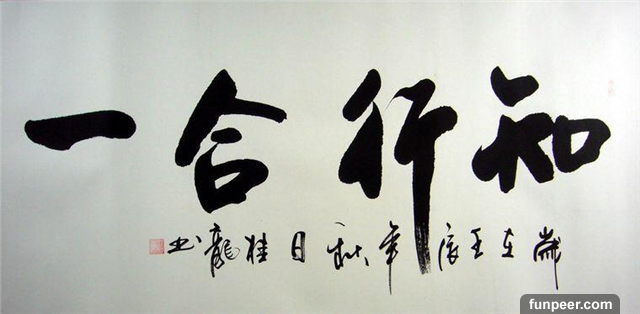 知行合一
歲在壬辰年秋日桂龍书
funpeer.com